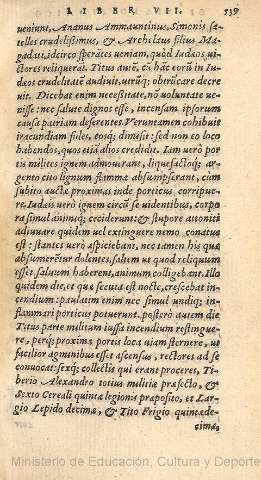 LIBER VII. 539
ueniunt, Ananus Ammauntinus, Simonis sa-
telles crudelissimus, & Archelaus filius Ma-
gadati, idcirco sperātes ueniam, quòd Iudæos ui-
ctores reliquerāt. Titus autē, & hāc eorū in Iu-
dæos crudelitatē audiuit, uerūq; obtrūcare decre
uit. Dicebat enim necessitate, nō uoluntate ue-
nisse: nec salute dignos esse, incensam ipsorum
causa patriam deserentes. Veruntamen cohibuit
iracundiam fides, eosq; dimisit: sed non eo loco
habendos, quo etiā alios credidit. Iam uerò por-
tis milites ignem admouerant, liquefactoq; ar-
gento citò lignum flamma absumpserant, eam
subitò auctæ proximas inde porticus corripue-
re. Iudæis uerò ignem circū se uidentibus, corpo
ra simul animiq; ceciderunt: & stupore attoniti
adiuuare quidem uel extinguere nemo conatus
est: stantes uerò aspiciebant, nec tamen his quæ
absumerētur dolentes, saltem ut quod reliquum
esset, saluum haberent, animum colligebant. Illo
quidem die, et quæ secuta est nocte, crescebat in-
cendium: paulatim enim nec simul undiq; in-
flammari porticus potuerunt. posterò autem die
Titus parte militum iussa incendium restingue-
re, perq; proximæ portis loca uiam sternere, ut
facilior agminibus esset ascensus, rectores ad se
conuocat: sexq; collectis qui erant proceres, Ti-
berio Alexandro totius militiæ præfecto, &
Sexto Cereali quintæ legionis præposito, et Lar-
gio Lepido decimæ, & Tito Frigio quintæde-
cimæ,
Ministerio de Educación, Cultura y Deporte